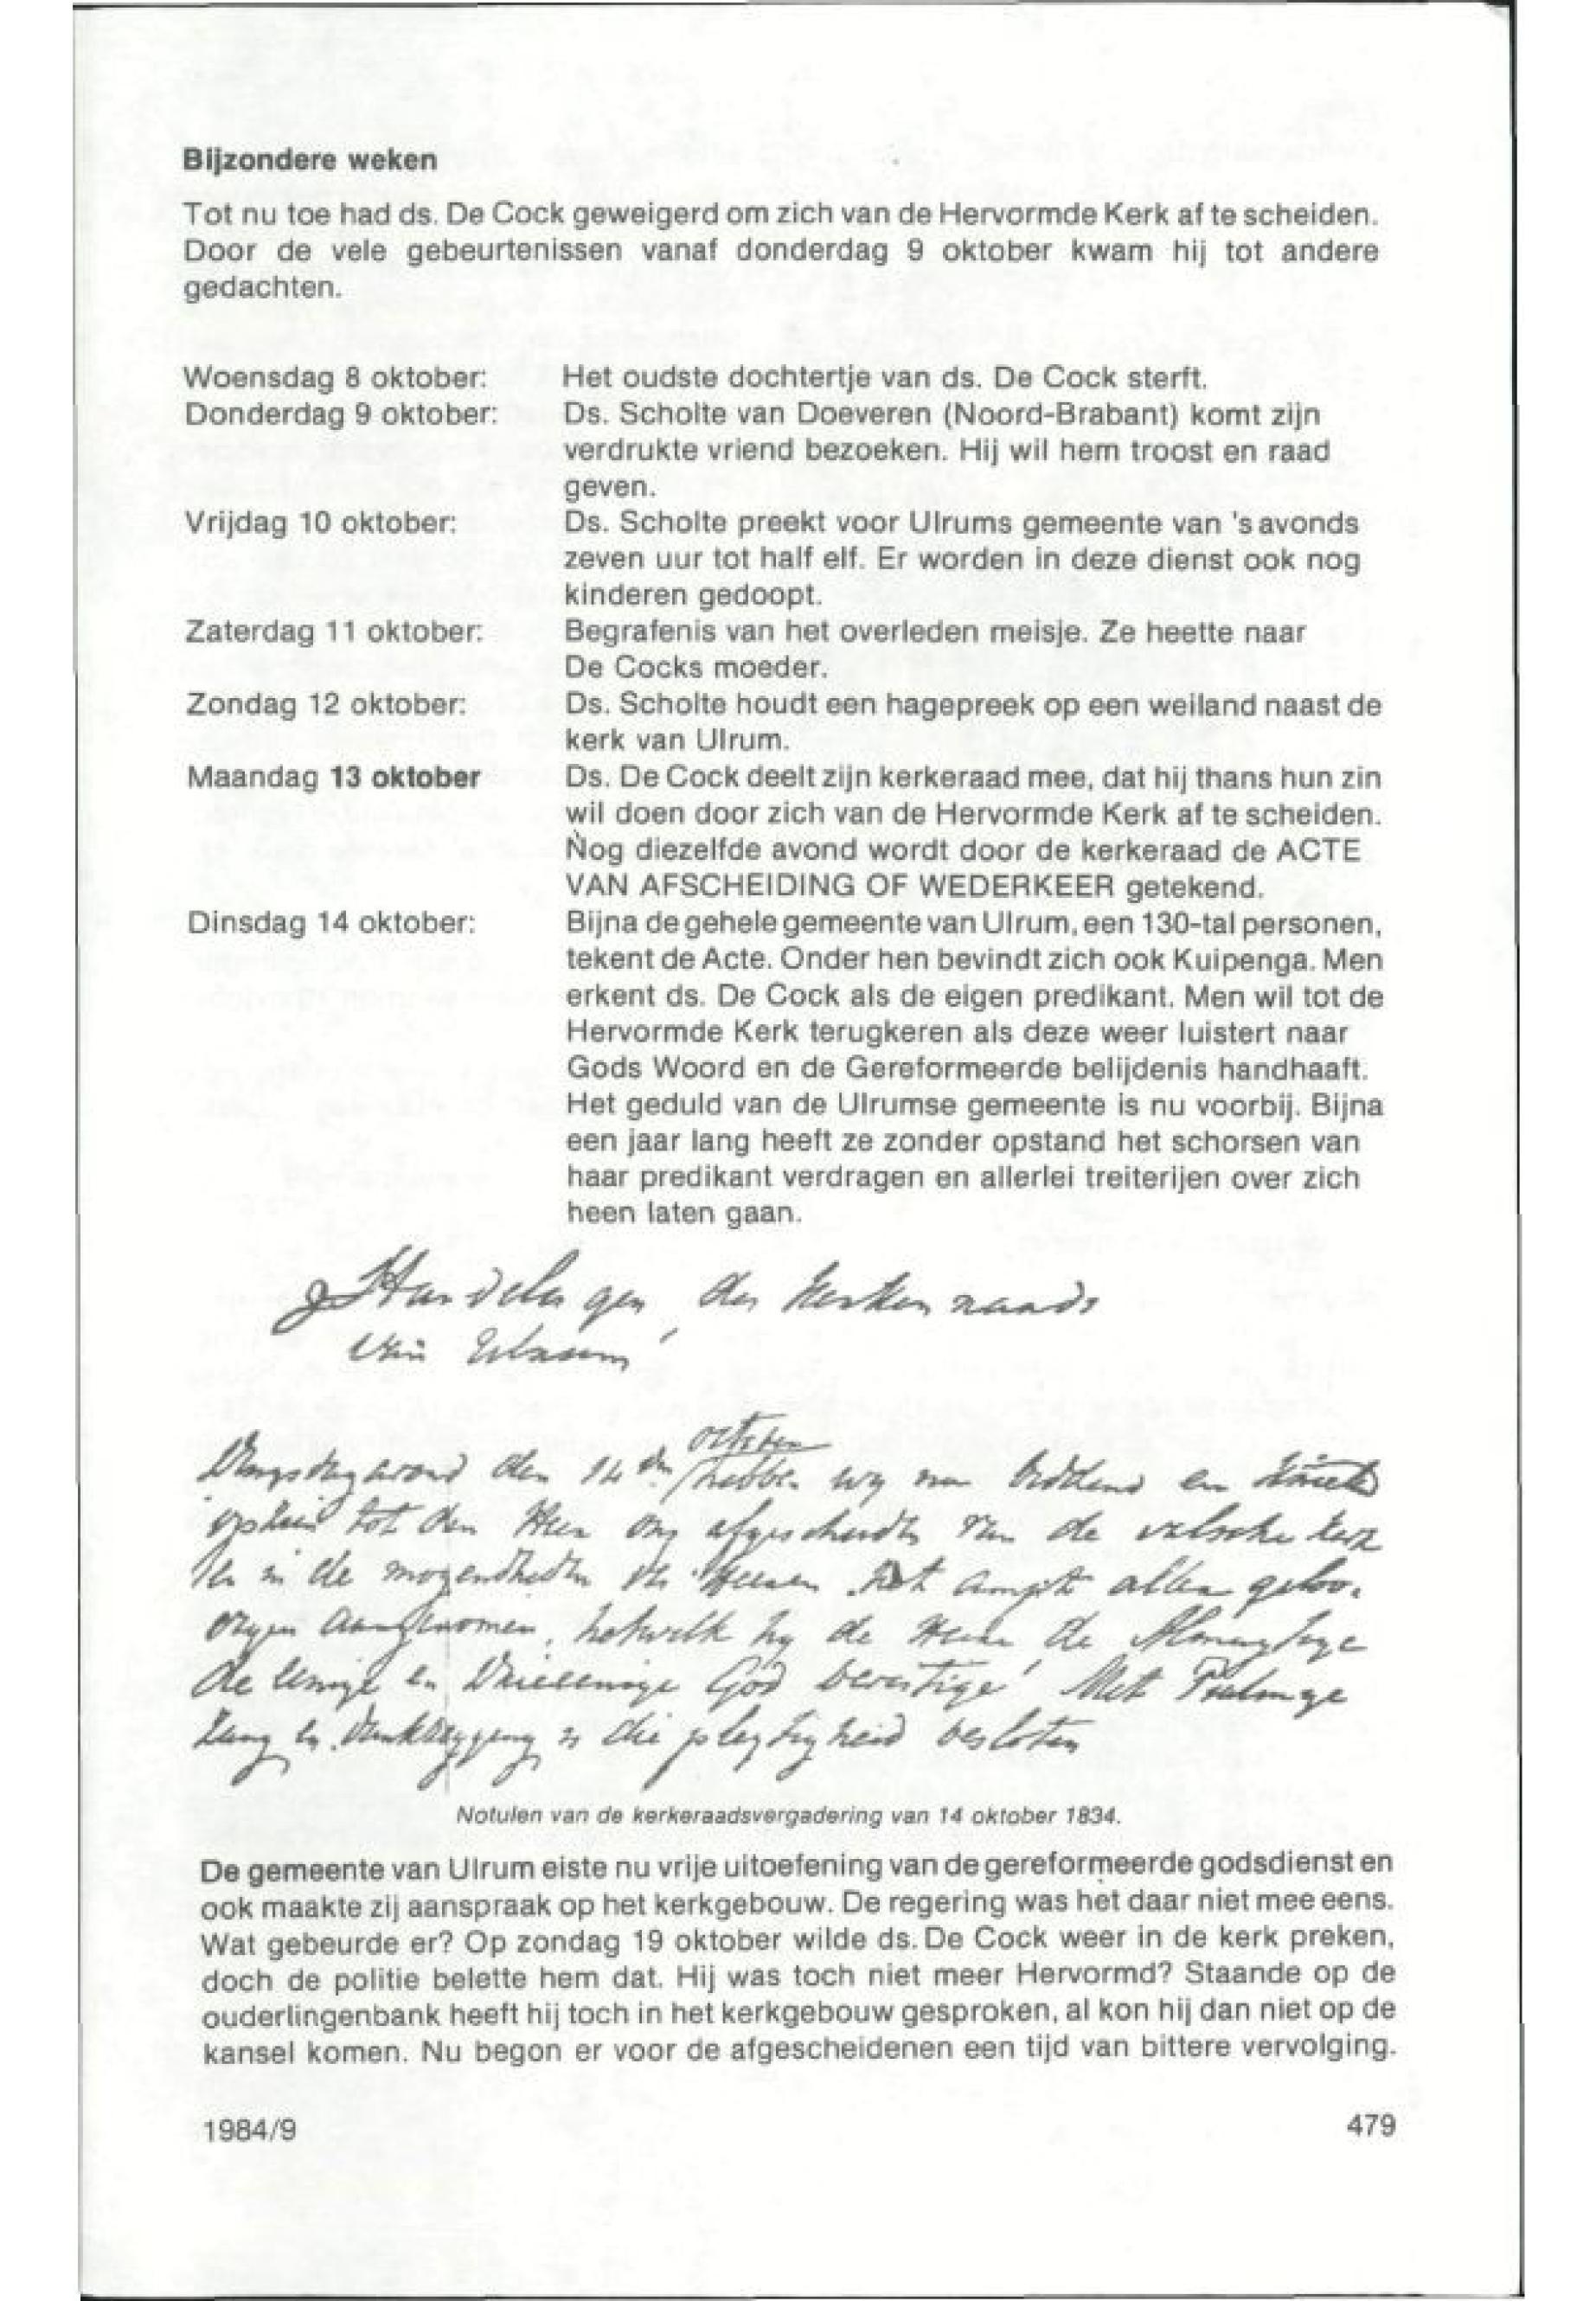 Bijzondere weken
Tot nu toe had ds. De Cock geweigerd om zich van de Hervormde Kerk af te scheiden.
Door de vele gebeurtenissen vanaf donderdag 9 oktober kwam hij tot andere
gedachten.
Woensdag 8 oktober: Het oudste dochtertje van ds. De Cock sterft.
Donderdag 9 oktober: Ds. Scholte van Doeveren (Noord-Brabant) komt zijn
verdrukte vriend bezoeken. Hij wil hem troost en raad
geven.
Vrijdag 10 oktober: Ds. Scholte preekt voor Ulrums gemeente van 's avonds
zeven uur tot half elf. Er worden in deze dienst ook nog
kinderen gedoopt.
Zaterdag 11 oktober: Begrafenis van het overleden meisje. Ze heette naar
De Cocks moeder.
Zondag 12 oktober: Ds. Scholte houdt een hagepreek op een weiland naast de
kerk van Ulrum.
Maandag 13 oktober Ds. De Cock deelt zijn kerkeraad mee, dat hij thans hun zin
wil doen door zich van de Hervormde Kerk af te scheiden.
Nog diezelfde avond wordt door de kerkeraad de ACTE
VAN AFSCHEIDING OF WEDERKEER getekend.
Dinsdag 14 oktober: Bijna de gehele gemeente van Ulrum, een 130-tal personen,
tekent de Acte. Onder hen bevindt zich ook Kuipenga. Men
erkent ds. De Cock als de eigen predikant. Men wil tot de
Hervormde Kerk terugkeren als deze weer luistert naar
Gods Woord en de Gereformeerde belijdenis handhaaft.
Het geduld van de Ulrumse gemeente is nu voorbij. Bijna
een jaar lang heeft ze zonder opstand het schorsen van
haar predikant verdragen en allerlei treiterijen over zich
heen laten gaan.
Handelingen des kerkenraads
van Ulrum
Dingsdag avond den 14 den october hebben wy na biddend en
opzien tot den Heer ons afgescheiden van de valsche kerk
en in de mogendheden des Heeren het ampt aller geloo-
vigen aangenomen, hetwelk hy de Heere de Almagtige
de eenige en Drieeenige God bevestige Met Psalmge
zang en dankzegging is die plegtigheid besloten
Notulen van de kerkeraadsvergadering van 14 oktober 1834.
De gemeente van Ulrum eiste nu vrije uitoefening van de gereformeerde godsdienst en
ook maakte zij aanspraak op het kerkgebouw. De regering was het daar niet mee eens.
Wat gebeurde er? Op zondag 19 oktober wilde ds. De Cock weer in de kerk preken,
doch de politie belette hem dat. Hij was toch niet meer Hervormd? Staande op de
ouderlingenbank heeft hij toch in het kerkgebouw gesproken, al kon hij dan niet op de
kansel komen. Nu begon er voor de afgescheidenen een tijd van bittere vervolging.
1984/9 479